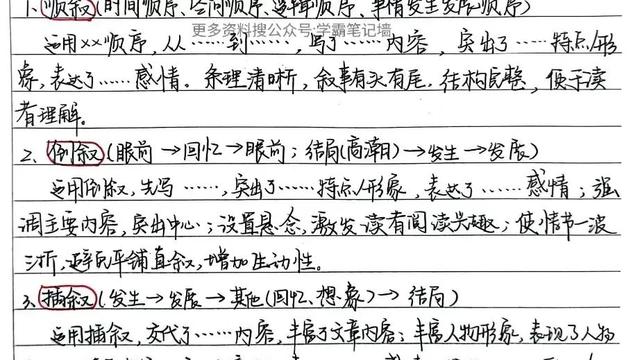 1.顺叙(时间顺序、空间顺序、逻辑顺序、事情发生发展顺序)
更多资料搜公众号:学霸笔记墙
运用××顺序,从……到……,写了……内容,突出了……特点/形
象,表达了……感情。条理清晰,叙事有头有尾,结构完整,便于读
者理解。
2、倒叙(眼前→回忆→眼前;结局(高潮)→发生→发展)
运用倒叙,先写……,突出了……特点/形象,表达了……感情;强
调主要内容,突出中心;设置悬念,激发读者阅读兴趣;使情节一波
三折,避免平铺直叙,增加生动性。
3、插叙(发生→发展→其他(回忆、想象)→结局)
运用插叙,交代了……内容,丰富了文章内容;丰富人物形象,表现了人物